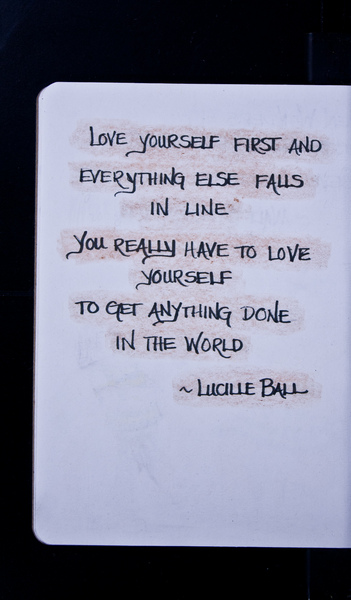 LOVE YOURSELF FIRST AND
EVERYTHING ELSE FALLS
IN LINE
YOU REALLY HAVE TO LOVE
YOURSELF
TO GET ANYTHING DONE
IN THE WORLD
~ LUCILLE BALL